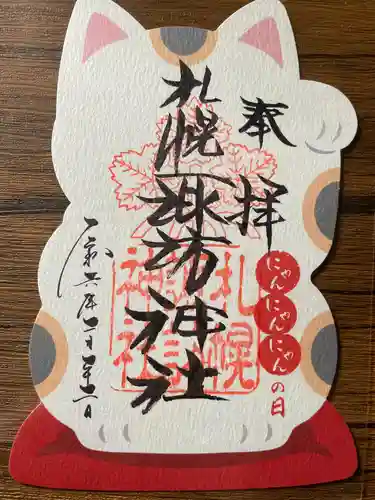 奉拝
にゃんにゃんにゃんの日
札幌諏訪神社
札幌
諏訪
神社
令和六年二月二十二日